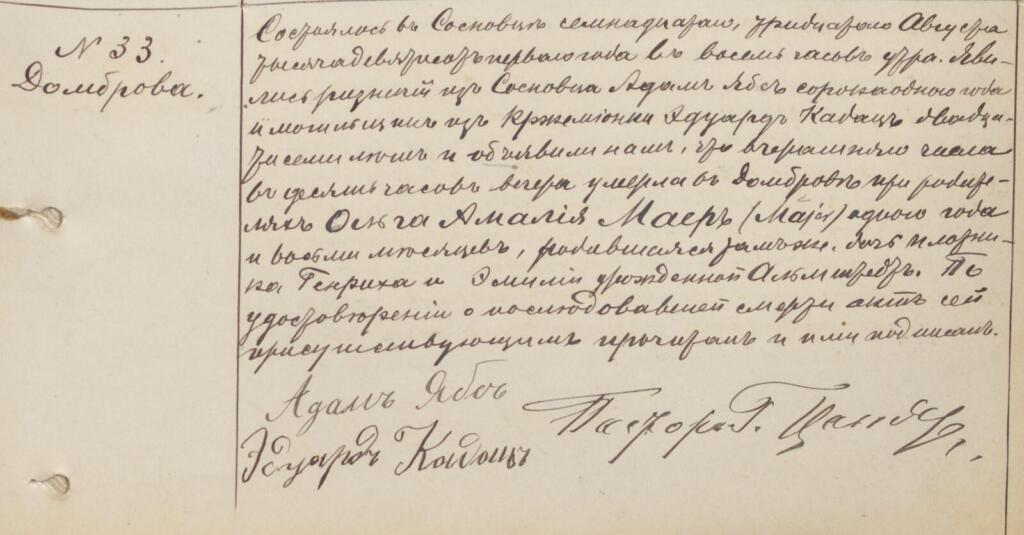 N 33.
Домброва.
Состоялось въ Сосновцѣ семнадцатаго, тридцатаго Августа
тысяча девятисотъ перваго года въ восемь часовъ утра. Яви-
лись рѣзчикъ изъ Сосновца Адамъ Ябсъ сорока одного года
и могильщикъ изъ Кржеміонки Эдуардъ Кабацъ двадца-
ти семи лѣтъ и объявили намъ, что вчерашняго числа
въ десять часовъ вечера умерла въ Домбровѣ при родите-
ляхъ Ольга Амалія Маеръ (Majer) одного года
и восьми мѣсяцевъ, родившаяся тамъ же, дочь плотни-
ка Генриха и Эмиліи урожденной Альтштедтъ. По
удостовѣреніи о послѣдовавшей смерти актъ сей
присутствующимъ прочитанъ и ими подписанъ.
Адамъ Ябсъ
Эдуардъ Кабацъ
Пасторъ Г. Цандеръ.